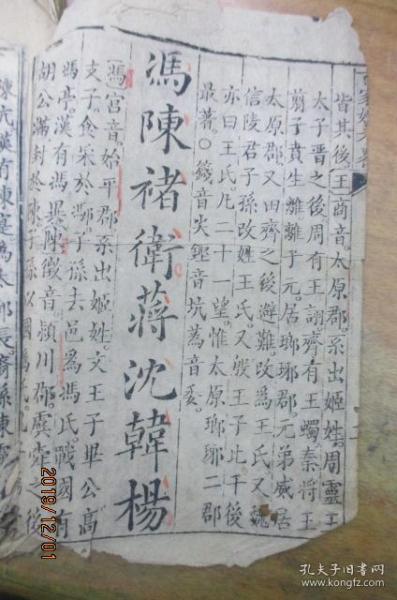 皆其後王商音太原郡系出姬姓周靈王
太子晉之後周有王詡齊有王蠋秦將王
翦子賁生離離子元居瑯琊郡元弟威居
太原郡又田齊之後避難改為王氏又魏
信陵君子孫改姓王氏又殷王子比干後
亦曰王氏凡二十一望惟太原瑯琊二郡
最著○錢音尖鏗音坑蒍音委
馮陳褚衛蔣沈韓楊
馮宫音始平郡系出姬姓文王子畢公高
支子食采於馮子孫去邑為馮氏戰國有
馮亭漢有馮異陳徵音潁川郡虞帝後
胡公滿封於陳子孫以國為氏
陳亢漢有陳寔為太邱長裔孫陳
2019/12/01
孔夫子旧书网
www.kongfz.com